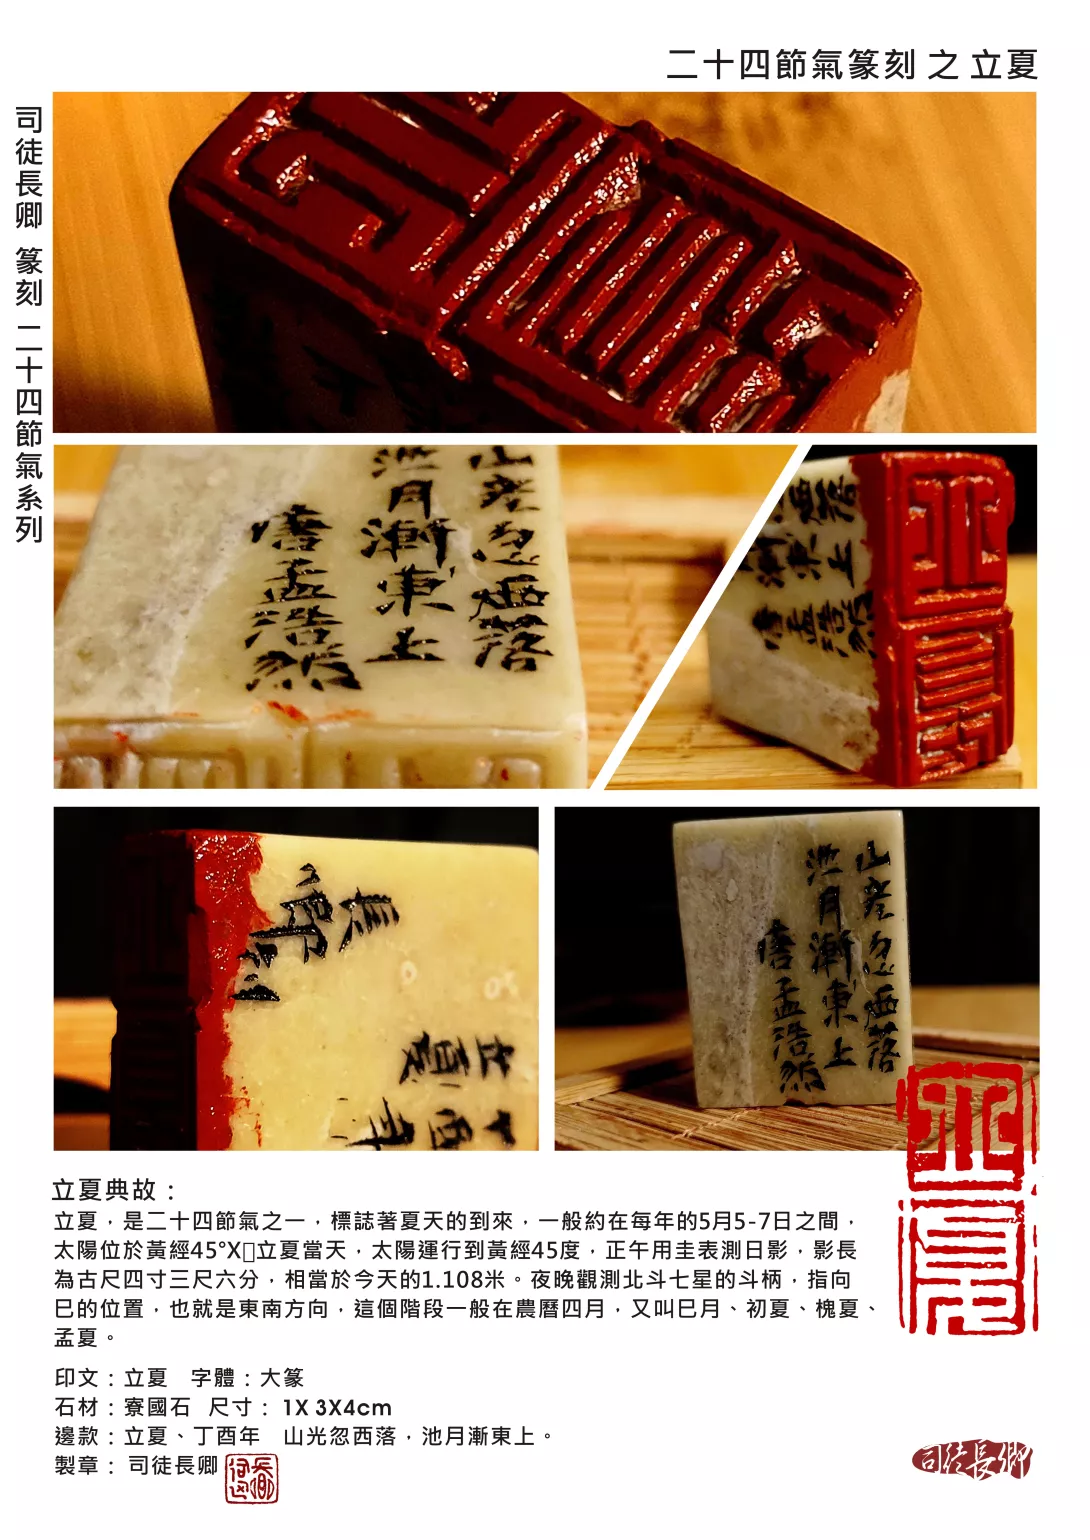 二十四節氣篆刻 之 立夏
司徒長卿 篆刻 二十四節氣系列
山光忽西落
池月漸東上
唐孟浩然
山光忽西落
池月漸東上
唐孟浩然
長卿
立夏
丁酉年
山光忽西落
池月漸東上
唐孟浩然
立夏
立夏典故：
立夏，是二十四節氣之一，標誌著夏天的到來，一般約在每年的5月5-7日之間，
太陽位於黃經45°X▯立夏當天，太陽運行到黃經45度，正午用圭表測日影，影長
為古尺四寸三尺六分，相當於今天的1.108米。夜晚觀測北斗七星的斗柄，指向
巳的位置，也就是東南方向，這個階段一般在農曆四月，又叫巳月、初夏、槐夏、
孟夏。
印文：立夏 字體：大篆
石材：寮國石 尺寸： 1X 3X4cm
邊款：立夏、丁酉年 山光忽西落，池月漸東上。
製章： 司徒長卿
司徒長卿